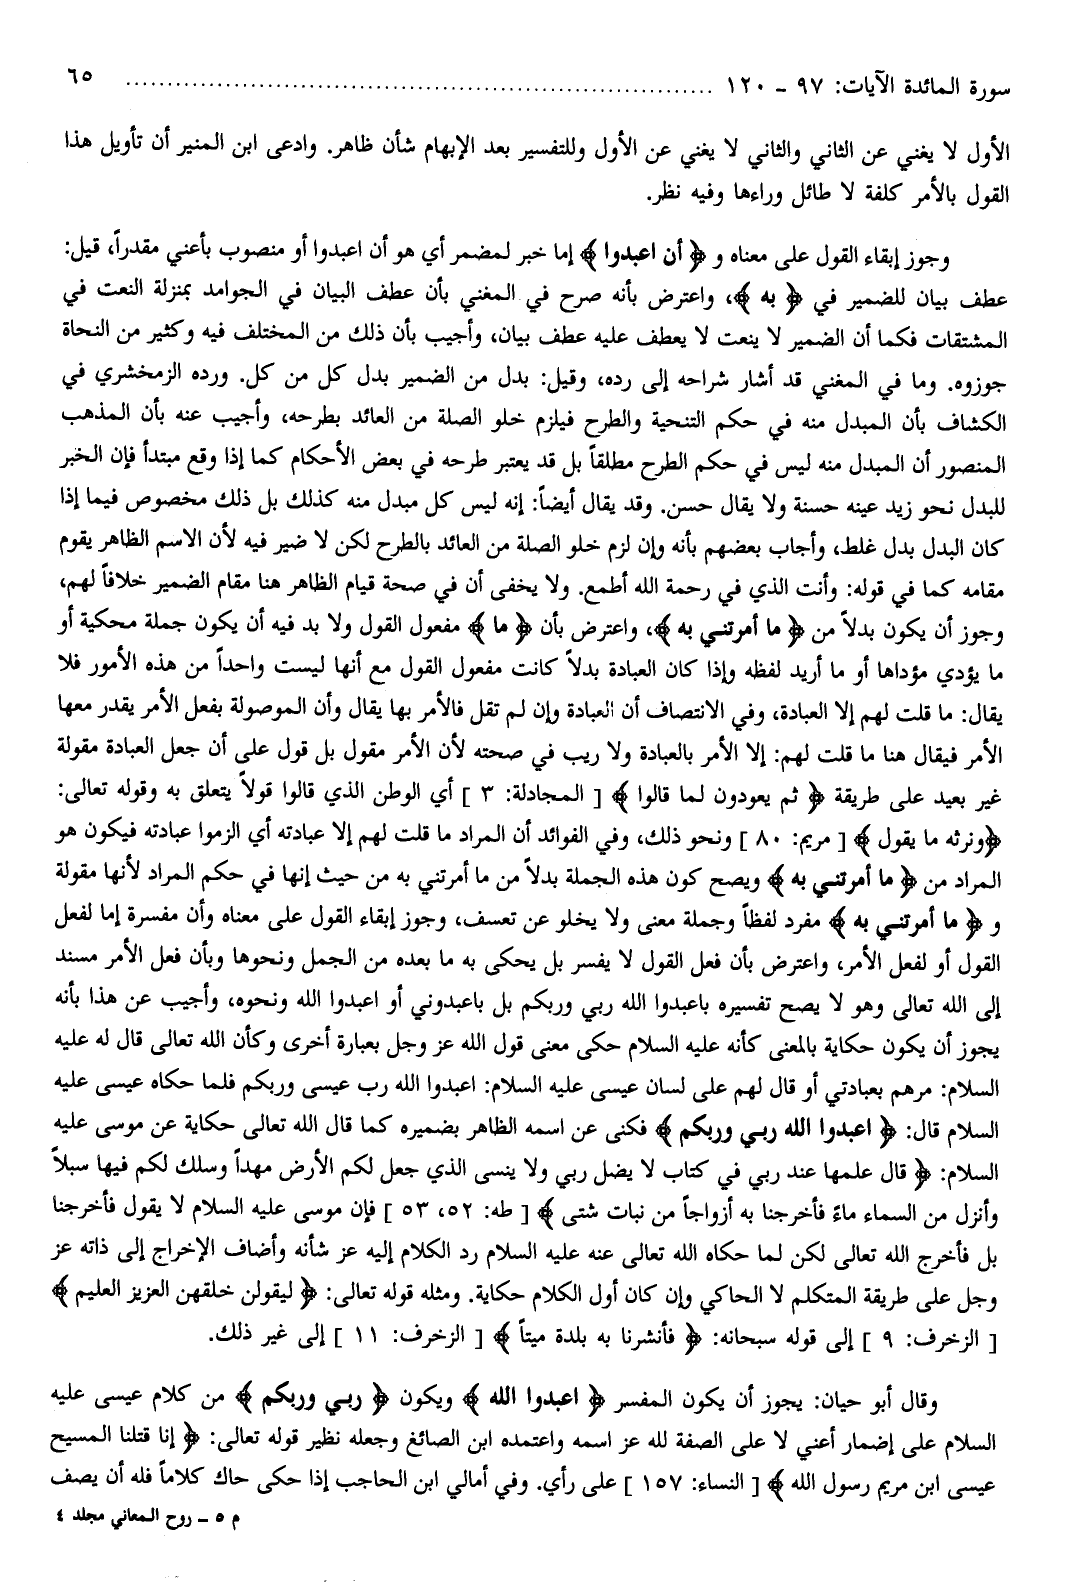 سورة المائدة الآيات: ٩٧ - ١٢٠ ................................................................ ٦٥
الأول لا يغني عن الثاني والثاني لا يغني عن الأول وللتفسير بعد الإبهام شأن ظاهر. وادعى ابن المنير أن تأويل هذا
القول بالأمر كلفة لا طائل وراءها وفيه نظر.
وجوز إبقاء القول على معناه و ﴿ أن اعبدوا ﴾ إما خبر لمضمر أي هو أن اعبدوا أو منصوب بأعني مقدراً، قيل:
عطف بيان للضمير في ﴿ به ﴾، واعترض بأنه صرح في المغني بأن عطف البيان في الجوامد بمنزلة النعت في
المشتقات فكما أن الضمير لا ينعت لا يعطف عليه عطف بيان، وأجيب بأن ذلك من المختلف فيه وكثير من النحاة
جوزوه. وما في المغني قد أشار شراحه إلى رده، وقيل: بدل من الضمير بدل كل من كل. ورده الزمخشري في
الكشاف بأن المبدل منه في حكم التنحية والطرح فيلزم خلو الصلة من العائد بطرحه، وأجيب عنه بأن المذهب
المنصور أن المبدل منه ليس في حكم الطرح مطلقاً بل قد يعتبر طرحه في بعض الأحكام كما إذا وقع مبتدأ فإن الخبر
للبدل نحو زيد عينه حسنة ولا يقال حسن. وقد يقال أيضاً: إنه ليس كل مبدل منه كذلك بل ذلك مخصوص فيما إذا
كان البدل بدل غلط، وأجاب بعضهم بأنه وإن لزم خلو الصلة من العائد بالطرح لكن لا ضير فيه لأن الاسم الظاهر يقوم
مقامه كما في قوله: وأنت الذي في رحمة الله أطمع. ولا يخفى أن في صحة قيام الظاهر هنا مقام الضمير خلافاً لهم،
وجوز أن يكون بدلاً من ﴿ ما أمرتني به ﴾، واعترض بأن ﴿ ما ﴾ مفعول القول ولا بد فيه أن يكون جملة محكية أو
ما يؤدي مؤداها أو ما أريد لفظه وإذا كان العبادة بدلاً كانت مفعول القول مع أنها ليست واحداً من هذه الأمور فلا
يقال: ما قلت لهم إلا العبادة، وفي الانتصاف أن العبادة وإن لم تقل فالأمر بها يقال وأن الموصولة بفعل الأمر يقدر معها
الأمر فيقال هنا ما قلت لهم: إلا الأمر بالعبادة ولا ريب في صحته لأن الأمر مقول بل قول على أن جعل العبادة مقولة
غير بعيد على طريقة ﴿ ثم يعودون لما قالوا ﴾ [ المجادلة: ٣ ] أي الوطن الذي قالوا قولاً يتعلق به وقوله تعالى:
﴿ونرثه ما يقول ﴾ [ مريم: ٨٠ ] ونحو ذلك، وفي الفوائد أن المراد ما قلت لهم إلا عبادته أي الزموا عبادته فيكون هو
المراد من ﴿ ما أمرتني به ﴾ ويصح كون هذه الجملة بدلاً من ما أمرتني به من حيث إنها في حكم المراد لأنها مقولة
و ﴿ ما أمرتني به ﴾ مفرد لفظاً وجملة معنى ولا يخلو عن تعسف، وجوز إبقاء القول على معناه وأن مفسرة إما لفعل
القول أو لفعل الأمر، واعترض بأن فعل القول لا يفسر بل يحكى به ما بعده من الجمل ونحوها وبأن فعل الأمر مسند
إلى الله تعالى وهو لا يصح تفسيره باعبدوا الله ربي وربكم بل باعبدوني أو اعبدوا الله ونحوه، وأجيب عن هذا بأنه
يجوز أن يكون حكاية بالمعنى كأنه عليه السلام حكى معنى قول الله عز وجل بعبارة أخرى وكأن الله تعالى قال له عليه
السلام: مرهم بعبادتي أو قال لهم على لسان عيسى عليه السلام: اعبدوا الله رب عيسى وربكم فلما حكاه عيسى عليه
السلام قال: ﴿ اعبدوا الله ربي وربكم ﴾ فكنى عن اسمه الظاهر بضميره كما قال الله تعالى حكاية عن موسى عليه
السلام: ﴿ قال علمها عند ربي في كتاب لا يضل ربي ولا ينسى الذي جعل لكم الأرض مهداً وسلك لكم فيها سبلاً
وأنزل من السماء ماءً فأخرجنا به أزواجاً من نبات شتى ﴾ [ طه: ٥٢، ٥٣ ] فإن موسى عليه السلام لا يقول فأخرجنا
بل فأخرج الله تعالى لكن لما حكاه الله تعالى عنه عليه السلام رد الكلام إليه عز شأنه وأضاف الإخراج إلى ذاته عز
وجل على طريقة المتكلم لا الحاكي وإن كان أول الكلام حكاية. ومثله قوله تعالى: ﴿ ليقولن خلقهن العزيز العليم ﴾
[ الزخرف: ٩ ] إلى قوله سبحانه: ﴿ فأنشرنا به بلدة ميتاً ﴾ [ الزخرف: ١١ ] إلى غير ذلك.
وقال أبو حيان: يجوز أن يكون المفسر ﴿ اعبدوا الله ﴾ ويكون ﴿ ربي وربكم ﴾ من كلام عيسى عليه
السلام على إضمار أعني لا على الصفة لله عز اسمه واعتمده ابن الصائغ وجعله نظير قوله تعالى: ﴿ إنا قتلنا المسيح
عيسى ابن مريم رسول الله ﴾ [ النساء: ١٥٧ ] على رأي. وفي أمالي ابن الحاجب إذا حكى حاك كلاماً فله أن يصف
م ٥ - روح المعاني مجلد ٤